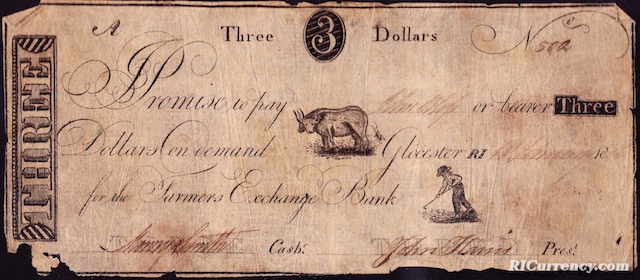 A Three 3 Dollars No 502
THREE
I Promise to pay or bearer Three
Dollars on demand Glocester RI
for the Farmers Exchange Bank
Cash.r John Harris Pres.t
RICurrency.com